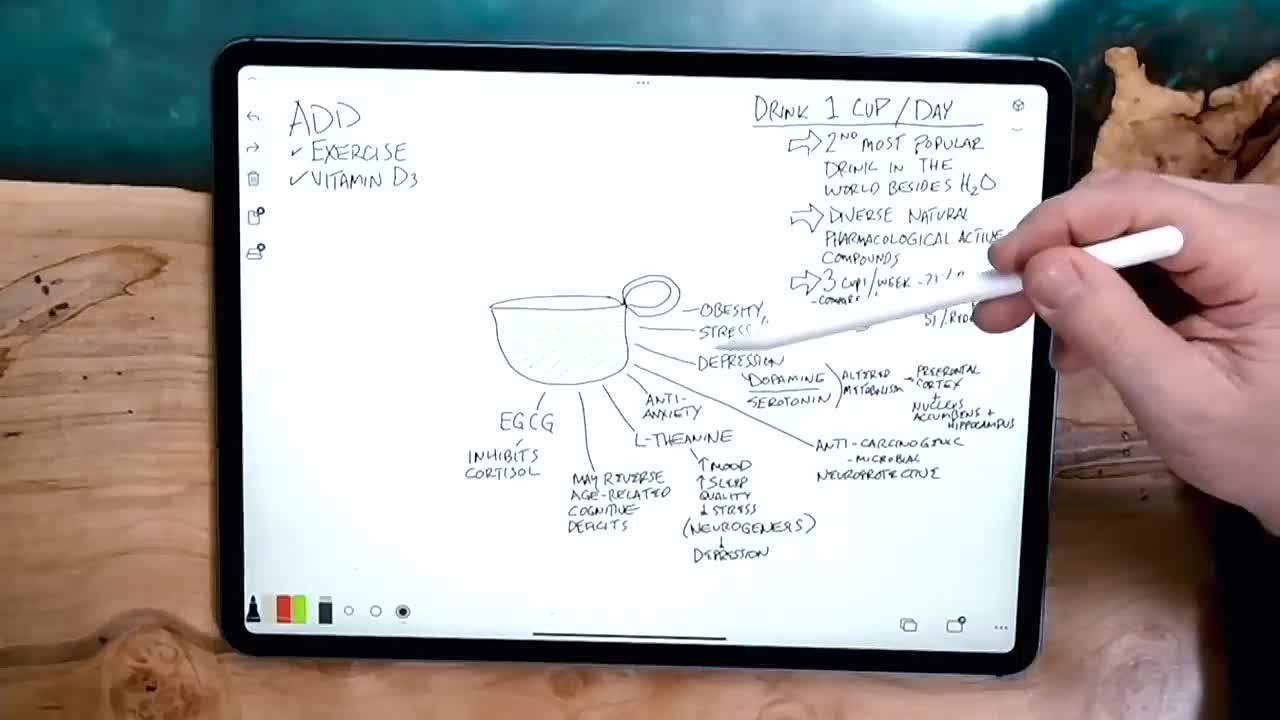 ADD
✓ EXERCISE
✓ VITAMIN D3
DRINK 1 CUP/DAY
⇨ 2ND MOST POPULAR
DRINK IN THE
WORLD BESIDES H2O
⇨ DIVERSE NATURAL
PHARMACOLOGICAL ACTIVE
COMPOUNDS
⇨ 3 CUPS/WEEK
- OBESITY
- STRESS
- DEPRESSION
DOPAMINE
SEROTONIN
ALTERED
METABOLISM →
PREFRONTAL
CORTEX
+
NUCLEUS
ACCUMBENS +
HIPPOCAMPUS
ANTI-
ANXIETY
ANTI-CARCINOGENIC
-MICROBIAL
NEUROPROTECTIVE
L-THEANINE
↑ MOOD
↑ SLEEP
QUALITY
↓ STRESS
(NEUROGENERS)
↓
DEPRESSION
EGCG
INHIBITS
CORTISOL
MAY REVERSE
AGE-RELATED
COGNITIVE
DEFICITS